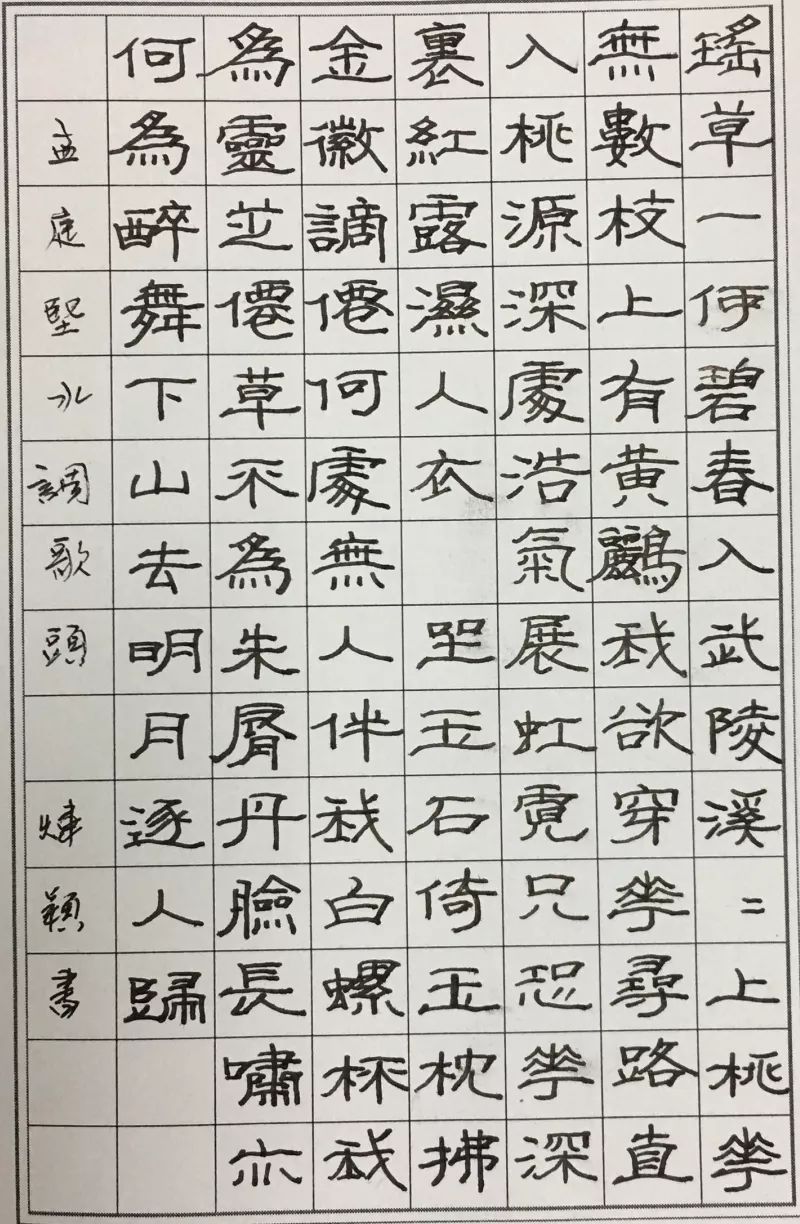 瑤草一何碧春入武陵溪二上桃華
無數枝上有黃鸝我欲穿華尋路直
入桃源深處浩氣展虹霓只恐華深
裏紅露濕人衣 坐玉石倚玉枕拂
金徽謫僊何處無人伴我白螺杯我
為靈芝僊草不為朱脣丹臉長嘯亦
何為醉舞下山去明月逐人歸
黃庭堅水調歌頭 煒穎書